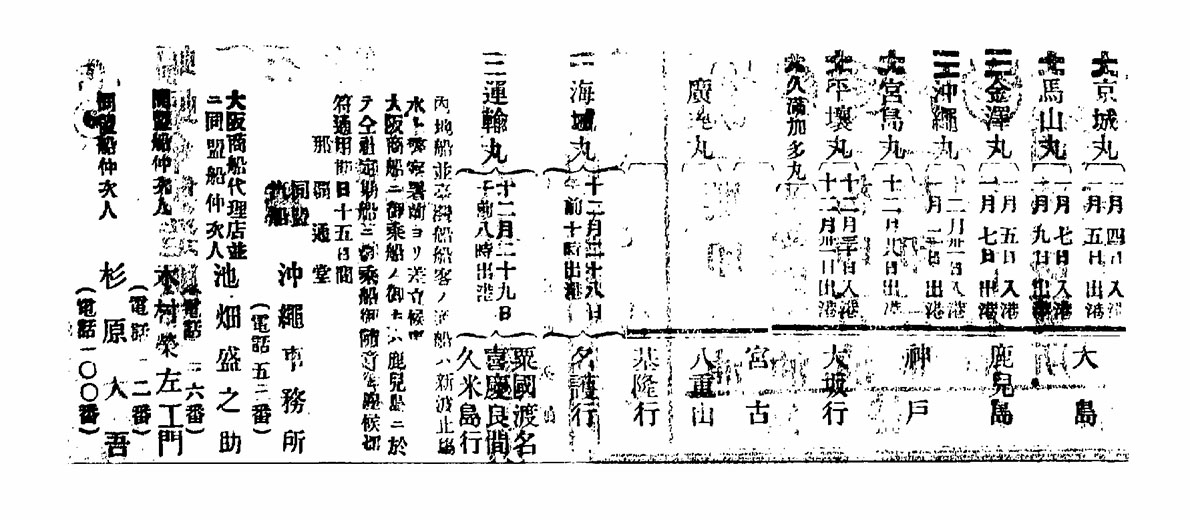 大 京城丸 一月四日入港 一月五日出港
大 馬山丸 一月七日入港 一月九日出港
三 金澤丸 一月五日入港 一月七日出港
三 沖繩丸 十二月卅一日入港 一月二日出港
大 宮島丸 十二月廿八日出港
大 平壤丸 十二月三十日入港 十二月卅一日出港
大 久滿加多丸
大島
鹿兒島
神戸
大坂行
廣 丸
宮古
八重山
基隆行
一 海城丸 十二月二十八日 午前十時出港
名護行
三 運輸丸 十二月二十九日 午前八時出港
粟國渡名
喜慶良間
久米島行
內地船並臺灣船船客ノ 船ハ新波止場
水上警察署前ヨリ差立候事
大阪商船ニ御乘船ノ御方ハ鹿兒島ニ於
テ仝社定期船ニ御乘船御隨意 候切
符通用期日十五日間
那覇通堂
同盟
汽船
沖繩事務所
(電話五二番)
大阪商船代理店並
ニ同盟船仲次人
池畑盛之助
(電話二六番)
同盟船仲次人
木村榮左エ門
(電話一二番)
同盟船仲次人
杉原人吾
(電話一〇〇番)